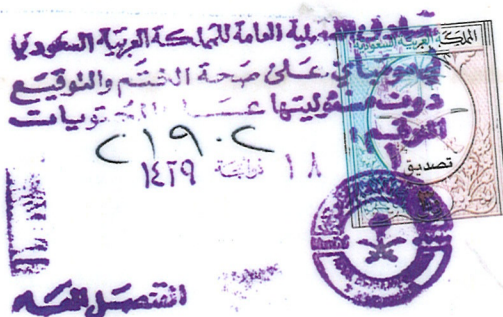 تصادق القنصلية العامة للمملكة العربية السعودية
في مومباي على صحة الختم والتوقيع
دون مسئوليتها عن المحتويات
الرقم :
٢١٩٠٢
١٨ ١٤٢٩
المملكة العربية السعودية
تصديق
القنصل